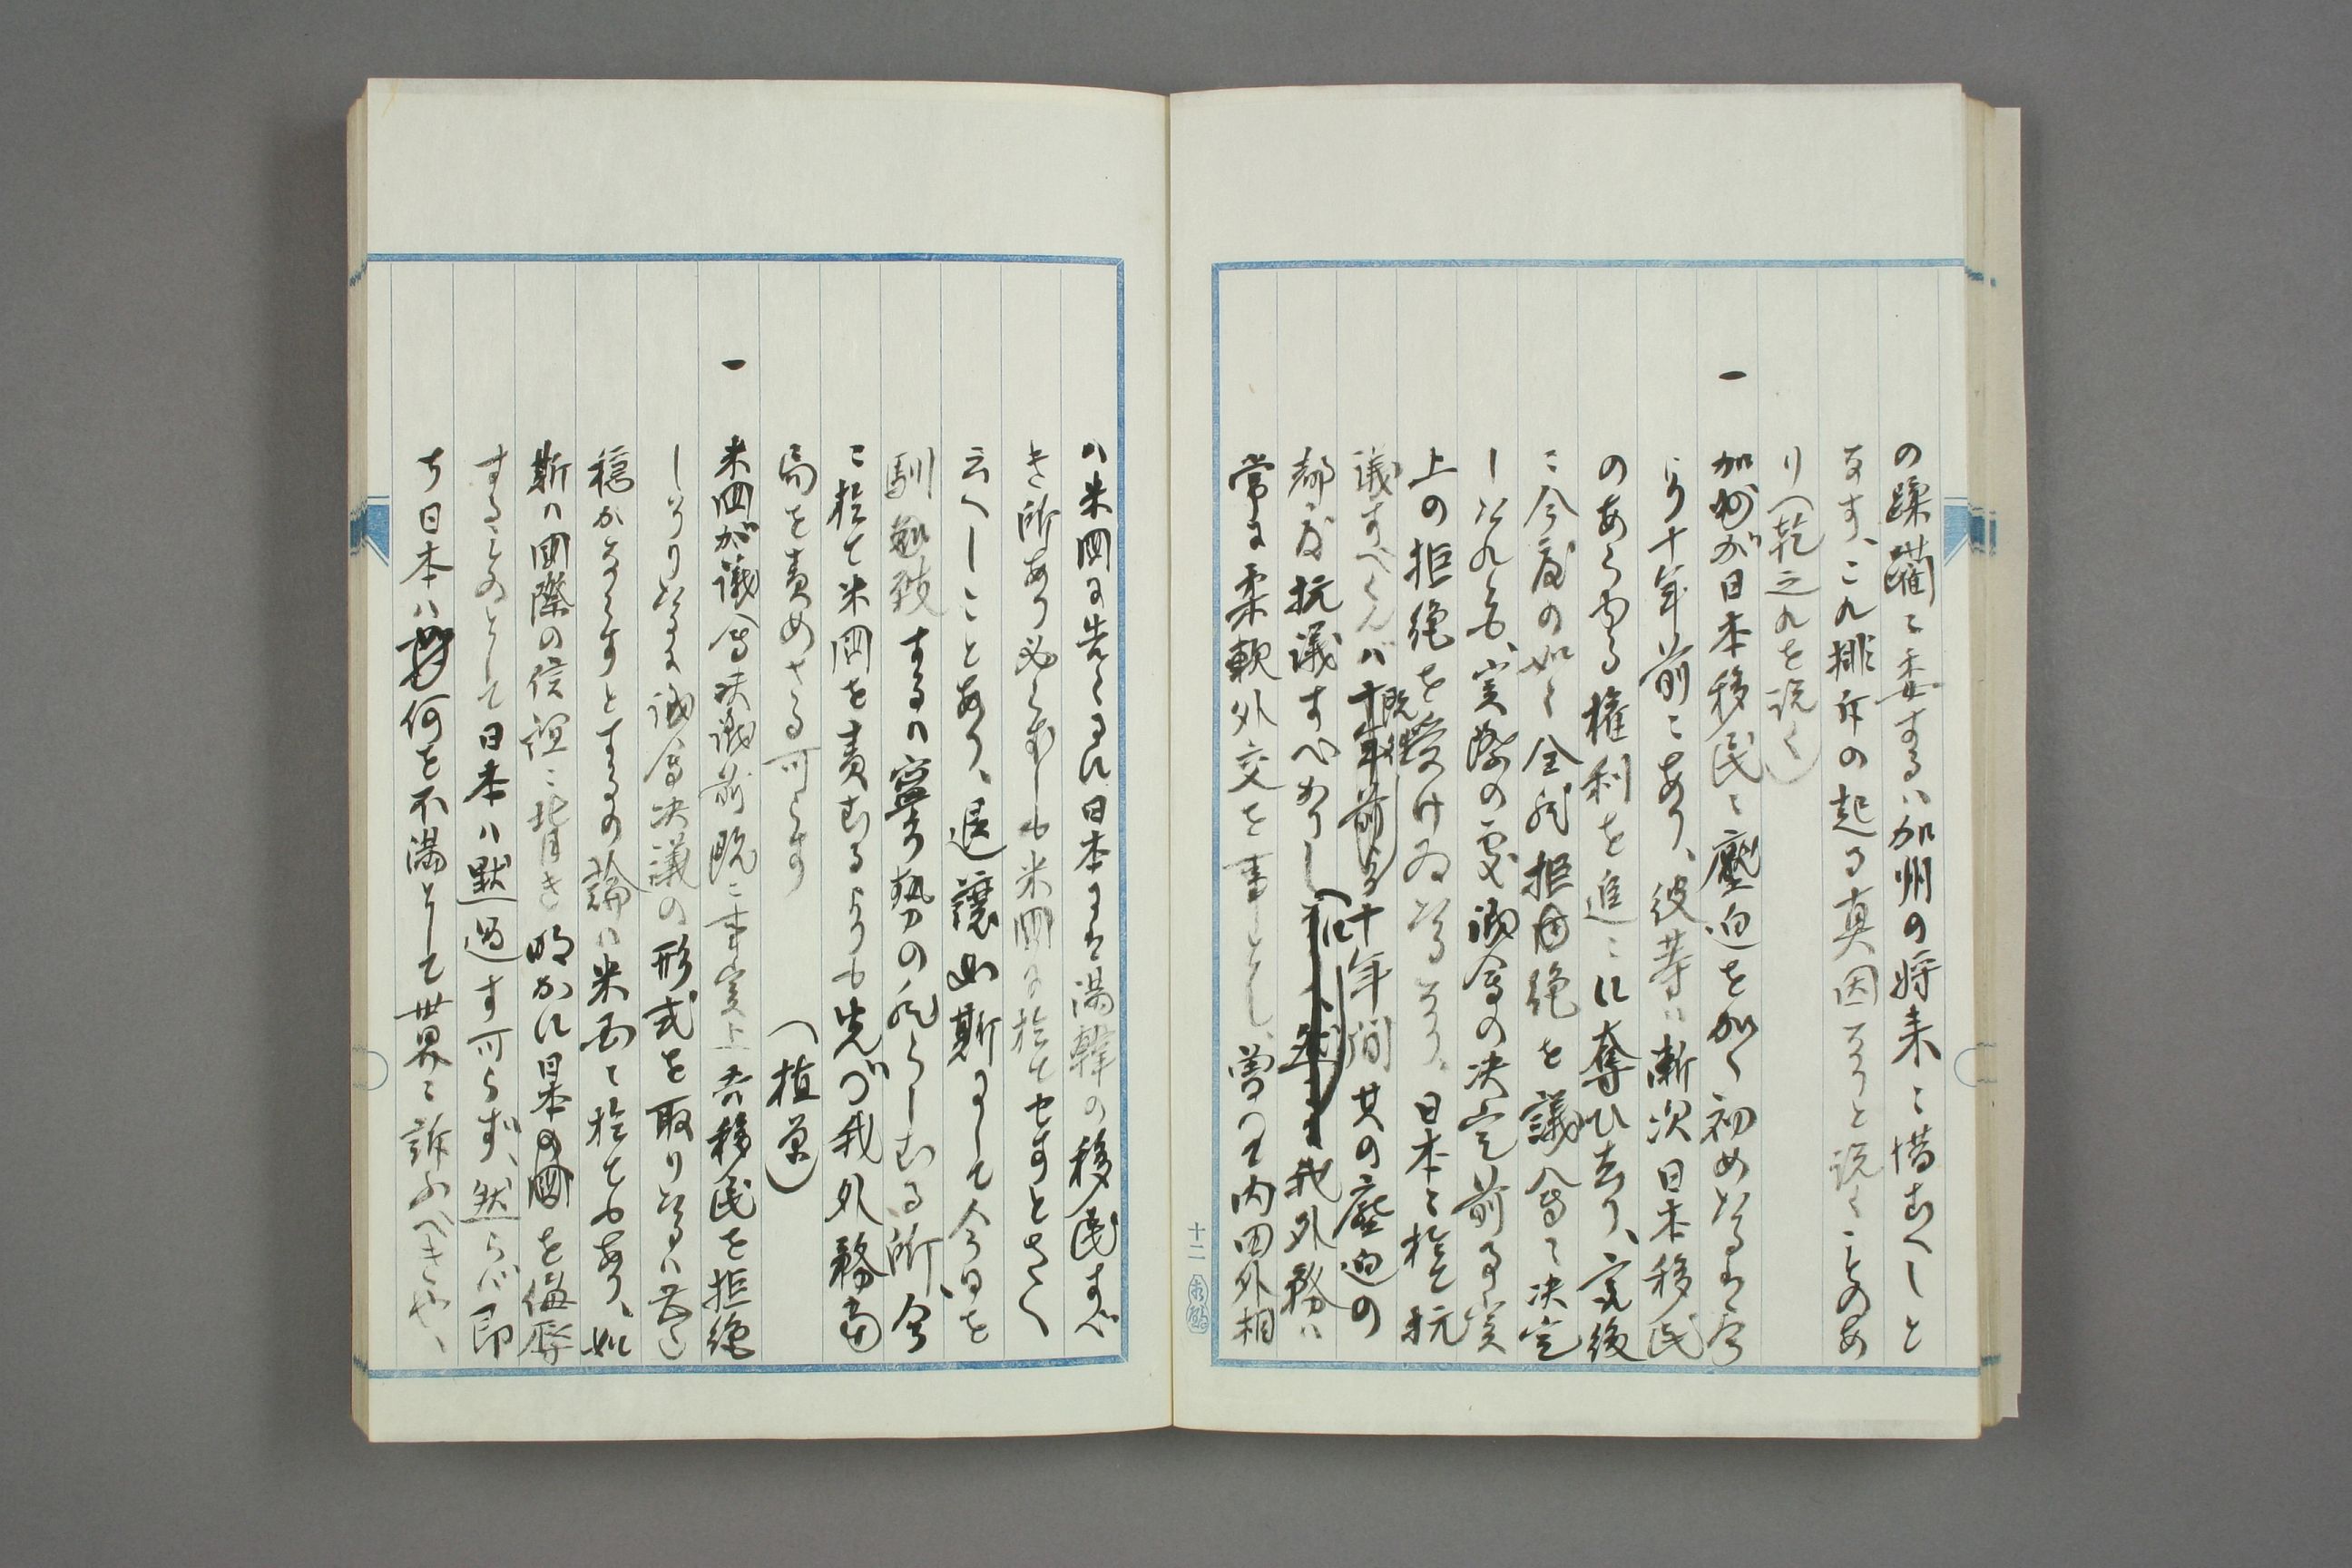 の蹂躙ニ委するハ加州の将来ニ惜むへしと
なす、これ排斥の起る真因なりと説くことのあ
り（乾之れを説く）
一 加州が日本移民ニ壓迫を加へ初めたるハ今
より十年前ニあり、彼等ハ漸次日本移民
のあらゆる権利を進ニに奪ひ去り、最後
ニ今度の如く全然拒絶を議会ニ決定
したれとも、実際の要ハ議会の決定前る実
上の拒絶を受け居たるなり、日本ニ於て抗
議すべくんバ既に十年間其の壓迫の
都度抗議すべかりし我外務ハ
常に柔軟外交を事とし、曽つて内田外相
ハ米国に告くるに日本にハ満韓の移民すべ
き所あり必らずしも米国に於てせずとも
云へしことあり、退譲如斯にして今日を
馴致するハ寧ろ勢の然らしむる所、今
ニ於て米国を責むるよりも先づ我外務当
局を責めさる可らす （植草）
一 米国が議会決議前既ニ事実上吾移民を拒絶
しありたるに議会決議の形式を取りたるハ甚し
穏かならすとするの論ハ米国に於てもあり、如
斯ハ国際の信誼ニ背き明かに日本の国を侮辱
するものとして日本ハ黙過す可らず、然らバ即
ち日本ハ何を不満として世界ニ訴ふへきや、
十二